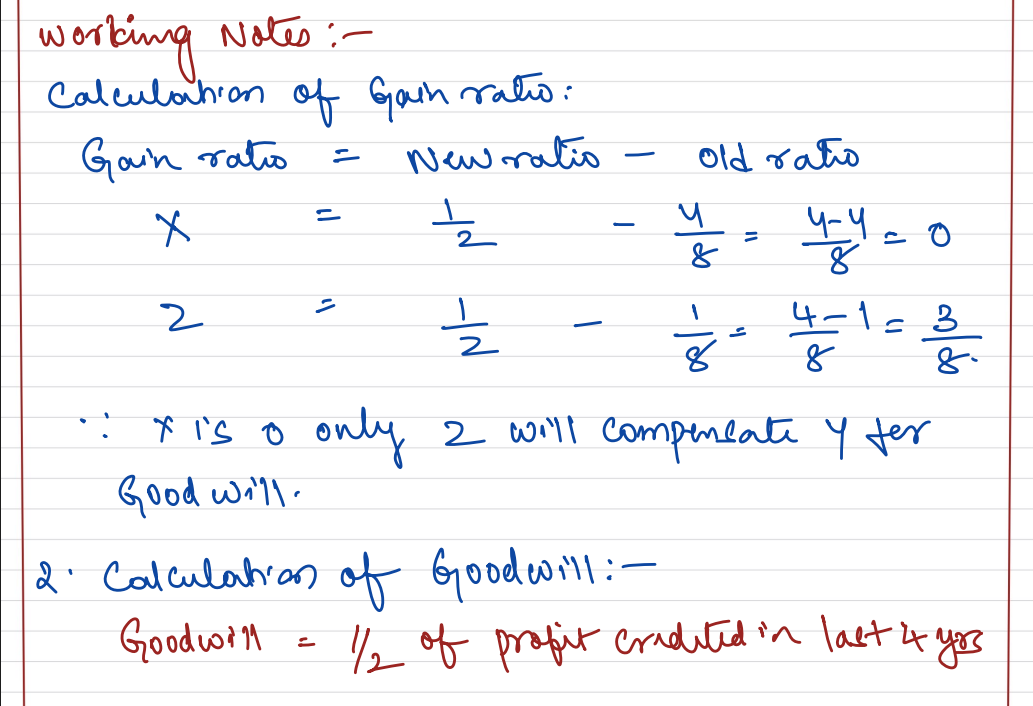 Working Notes :-
Calculation of Gain ratio :
Gain ratio = New ratio - old ratio
X = 1/2 - 4/8 = 4-4/8 = 0
Z = 1/2 - 1/8 = 4-1/8 = 3/8.
∵ X is 0 only Z will compensate Y for
Goodwill.
2. Calculation of Goodwill :-
Goodwill = 1/2 of profit credited in last 4 yrs